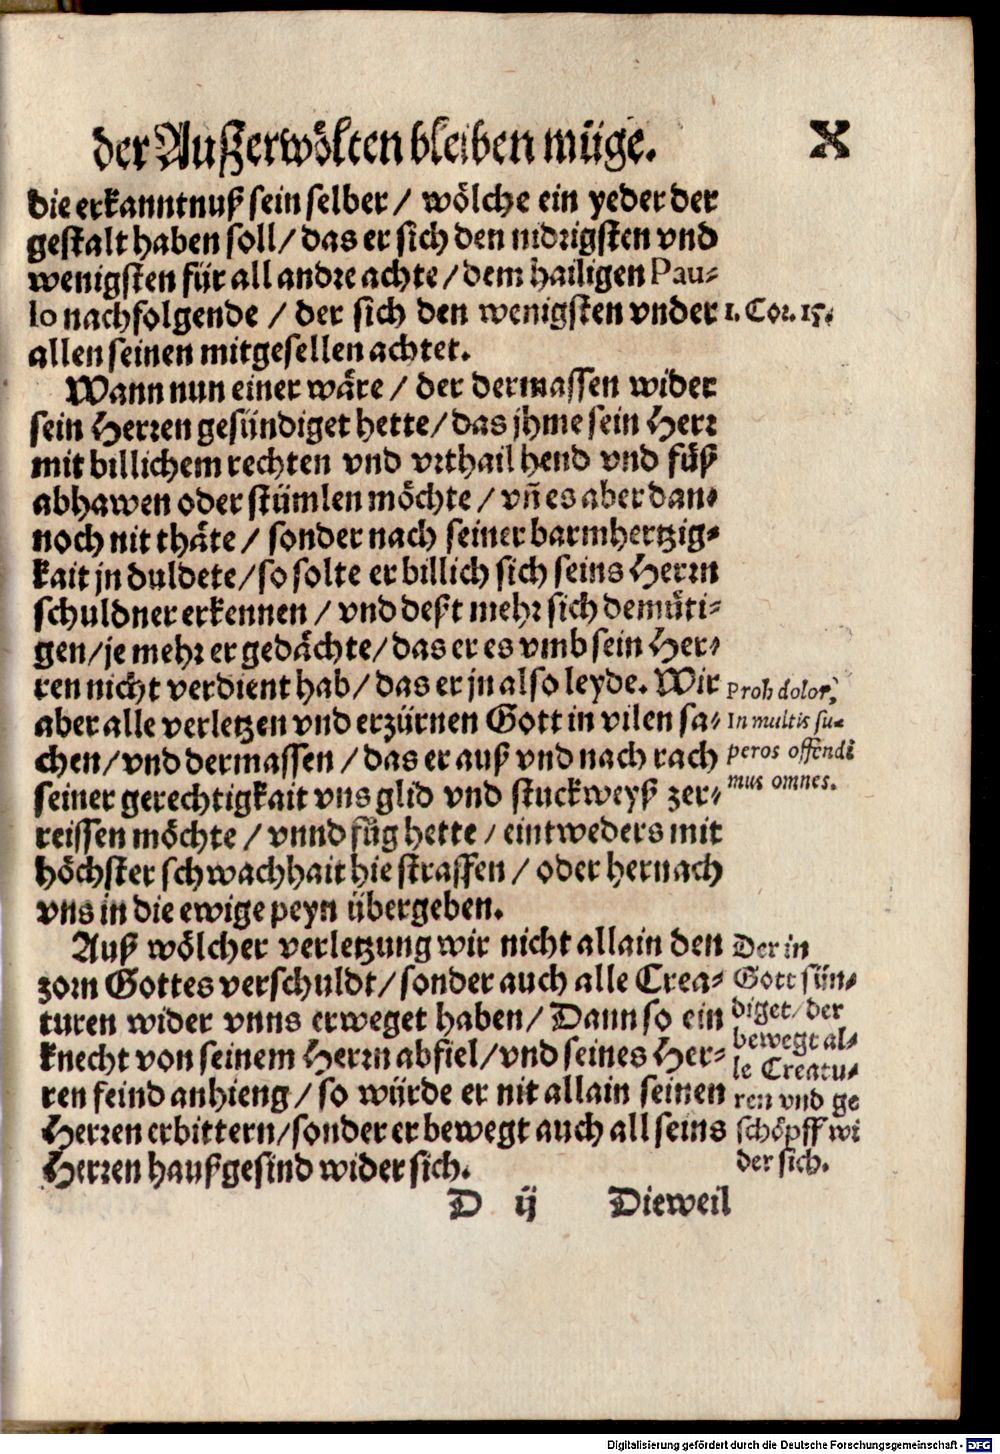 der Außerwölten bleiben müge. X
die erkanntnuß sein selber / wölche ein yeder der
gestalt haben soll/ das er sich den nidrigsten vnd
wenigsten für all andre achte / dem hailigen Pau-
lo nachfolgende / der sich den wenigsten vnder
allen seinen mitgesellen achtet.
1. Cor. 15.
Wann nun einer wäre / der dermassen wider
sein Herren gesündiget hette/ das jhme sein Herr
mit billichem rechten vnd vrthail hend vnd füß
abhawen oder stümlen möchte / vñ es aber dan-
noch nit thäte / sonder nach seiner barmhertzig-
kait jn duldete/ so solte er billich sich seins Herrn
schuldner erkennen / vnd dest mehr sich demüti-
gen/ je mehr er gedächte/ das er es vmb sein Her-
ren nicht verdient hab/ das er jn also leyde. Wir
aber alle verletzen vnd erzürnen Gott in vilen sa-
chen/ vnd dermassen / das er auß vnd nach rach
seiner gerechtigkait vns glid vnd stuckweyß zer-
reissen möchte / vnnd füg hette / eintweders mit
höchster schwachhait hie straffen / oder hernach
vns in die ewige peyn übergeben.
Proh dolor,
In multis su-
peros offendi
mus omnes.
Auß wölcher verletzung wir nicht allain den
zorn Gottes verschuldt/ sonder auch alle Crea-
turen wider vnns erweget haben/ Dann so ein
knecht von seinem Herrn abfiel/ vnd seines Her-
ren feind anhieng / so würde er nit allain seinen
Herren erbittern/ sonder er bewegt auch all seins
Herren haußgesind wider sich.
Der in
Gott sün-
diget/ der
bewegt al-
le Creatu-
ren vnd ge
schöpff wi
der sich.
D ij Dieweil
Digitalisierung gefördert durch die Deutsche Forschungsgemeinschaft - DFG